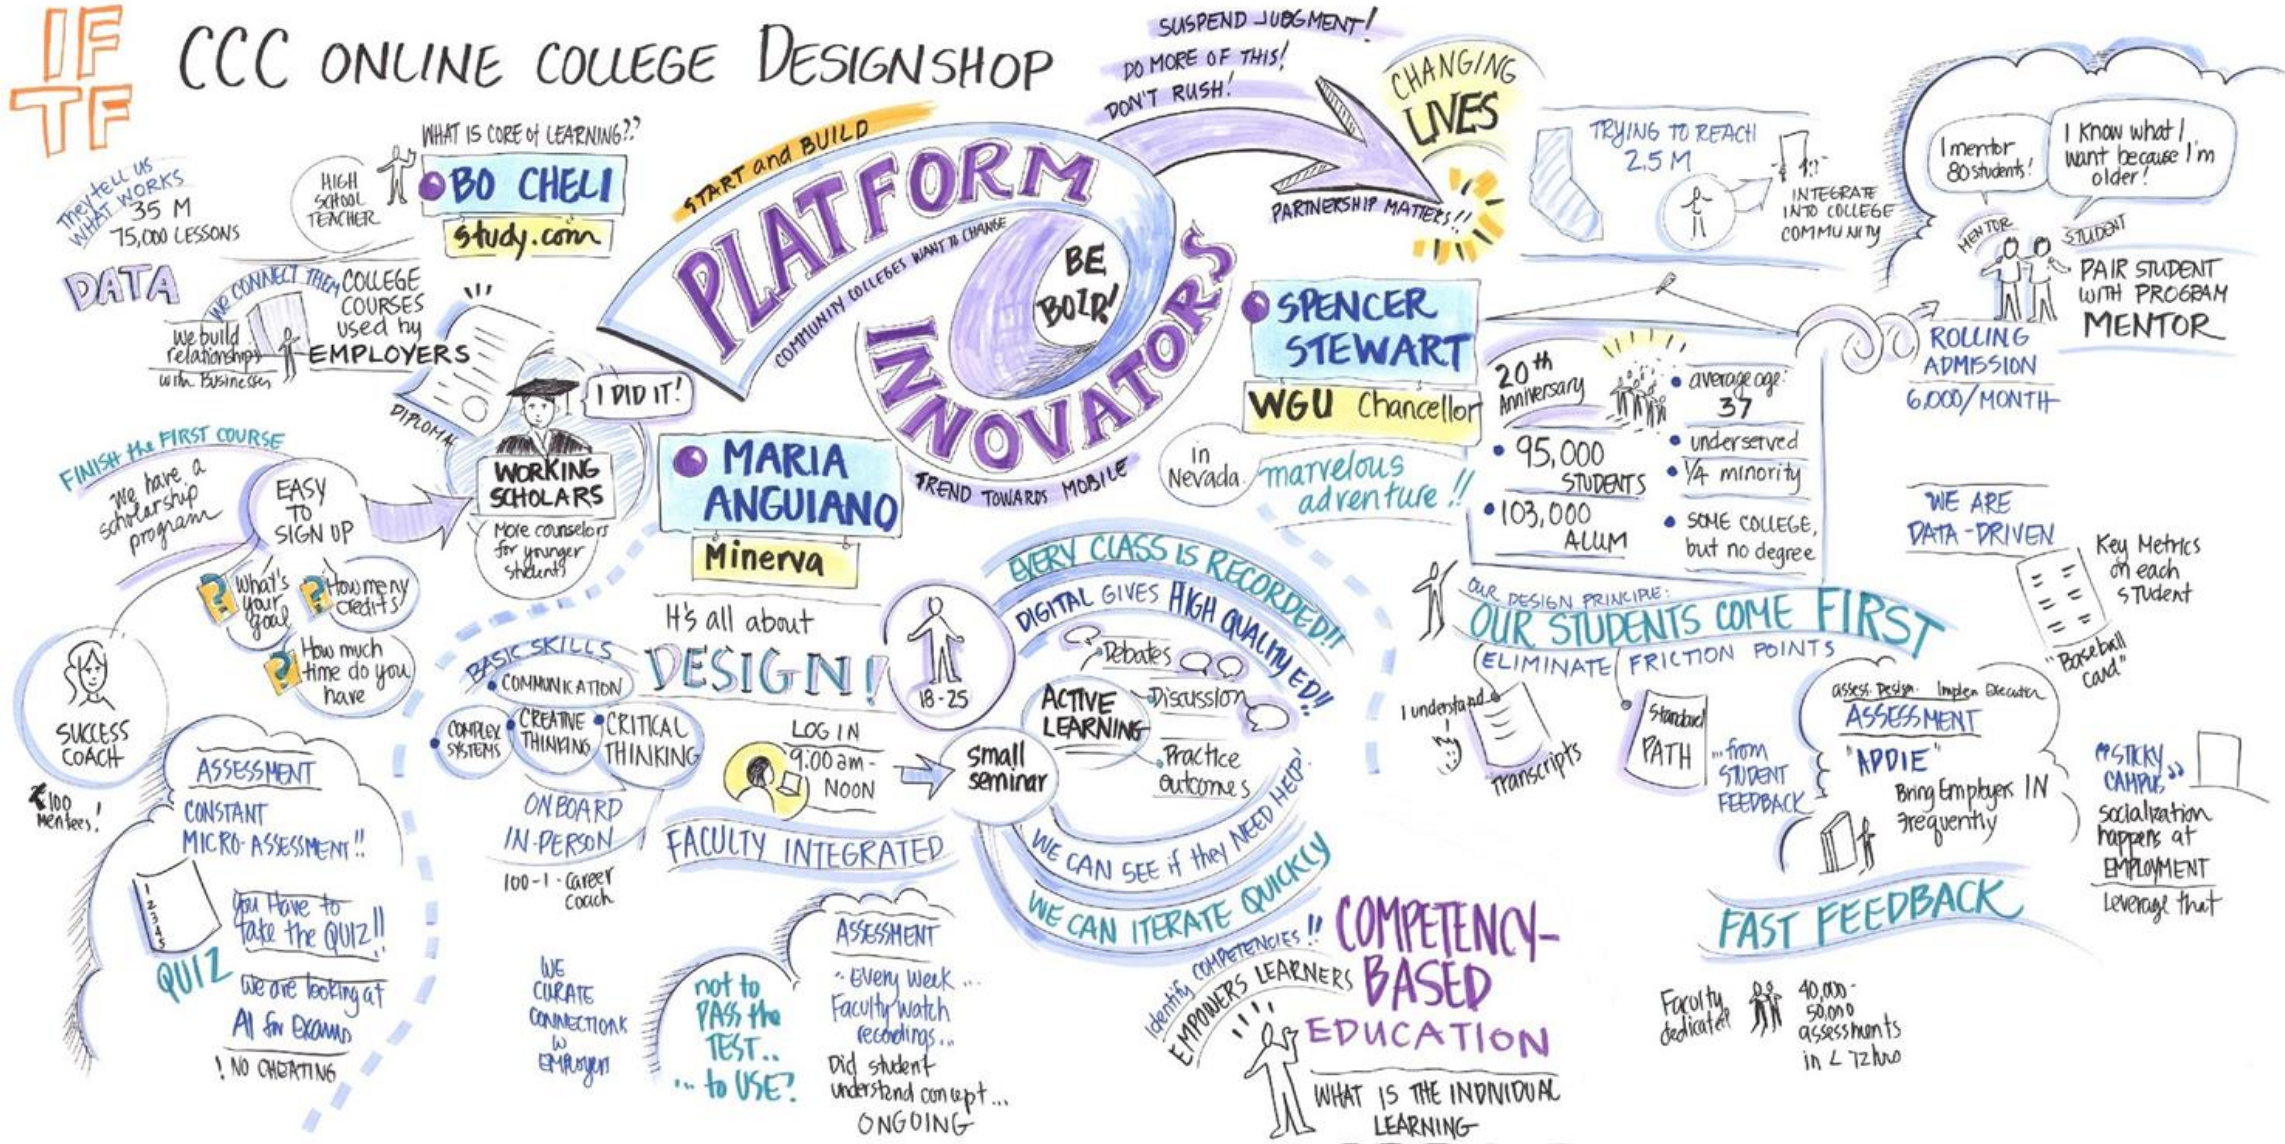 IF
TF
CCC ONLINE COLLEGE DESIGNSHOP
SUSPEND JUDGMENT!
DO MORE OF THIS!
DON'T RUSH!
CHANGING
LIVES
PARTNERSHIP MATTERS!!
START and BUILD
PLATFORM
INNOVATORS
COMMUNITY COLLEGES WANT TO CHANGE
BE
BOLD!
TREND TOWARDS MOBILE
WHAT IS CORE of LEARNING??
BO CHELI
Study.com
HIGH
SCHOOL
TEACHER
They tell us
WHAT WORKS
35 M
75,000 LESSONS
DATA
WE CONNECT THEM
COLLEGE
COURSES
used by
EMPLOYERS
We build
relationships
with Businesses
DIPLOMA
I DID IT!
WORKING
SCHOLARS
More counselors
for younger
students
FINISH the FIRST COURSE
We have a
scholarship
program
EASY
TO
SIGN UP
What's
your
goal
How many
credits
How much
time do you
have
SUCCESS
COACH
100
Mentees!
ASSESSMENT
CONSTANT
MICRO-ASSESSMENT!!
1
2
3
4
5
QUIZ
You Have to
take the QUIZ!!
We are looking at
AI for Exams
! NO CHEATING
MARIA
ANGUIANO
Minerva
It's all about
DESIGN!
18-25
BASIC SKILLS
COMMUNICATION
COMPLEX
SYSTEMS
CREATIVE
THINKING
CRITICAL
THINKING
ONBOARD
IN-PERSON
100-1-Career
Coach
LOG IN
9:00am-
NOON
small
seminar
FACULTY INTEGRATED
EVERY CLASS IS RECORDED!!
DIGITAL GIVES HIGH QUALITY ED!!
ACTIVE
LEARNING
Debates
Discussion
Practice
outcomes
WE CAN SEE if they NEED HELP!
WE CAN ITERATE QUICKLY
WE
CURATE
CONNECTIONS
W
EMPloyers
not to
PASS the
TEST..
... to USE?
ASSESSMENT
Every week ...
Faculty watch
recordings...
Did student
understand concept...
ONGOING
SPENCER
STEWART
WGU Chancellor
in
Nevada
marvelous
adventure!!
TRYING TO REACH
2.5 M
INTEGRATE
INTO COLLEGE
COMMUNITY
20th
Anniversary
95,000
STUDENTS
103,000
ALUM
average age:
37
underserved
1/4 minority
SOME COLLEGE,
but no degree
I mentor
80 students!
I know what I
want because I'm
older!
MENTOR
STUDENT
PAIR STUDENT
WITH PROGRAM
MENTOR
ROLLING
ADMISSION
6,000/MONTH
WE ARE
DATA-DRIVEN
Key Metrics
on each
student
"Baseball
card"
OUR DESIGN PRINCIPLE:
OUR STUDENTS COME FIRST
ELIMINATE FRICTION POINTS
I understand
Transcripts
Standard
PATH
...from
STUDENT
FEEDBACK
assess. Design. Implem Execution
ASSESSMENT
"APDIE"
Bring Employers IN
Frequently
"STICKY
CAMPUS"
Socialization
happens at
EMPLOYMENT
Leverage that
FAST FEEDBACK
Faculty
dedicated
40,000-
50,000
assessments
in < 72 hrs
Identify COMPETENCIES!!
EMPOWERS LEARNERS
COMPETENCY-
BASED
EDUCATION
WHAT IS THE INDIVIDUAL
LEARNING